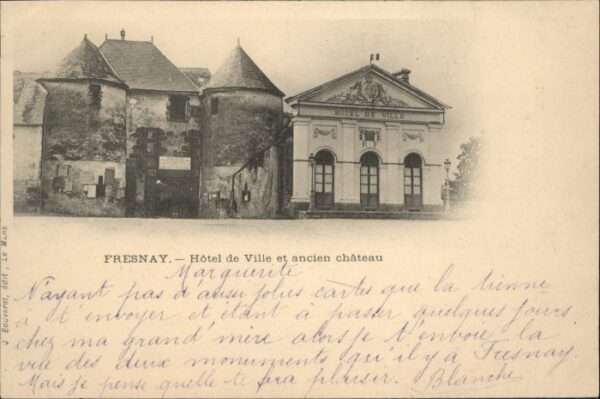 HOTEL DE VILLE
FRESNAY. — Hôtel de Ville et ancien château
J. Bouveret, édit., Le Mans
Marguerite
N'ayant pas d'aussi jolies cartes que la tienne
à t'envoyer et étant à passer quelques jours
chez ma grand'mère alors je t'envoie la
vue des deux monuments qu'il y a Fresnay.
Mais je pense quelle te fra plaisir. Blanche